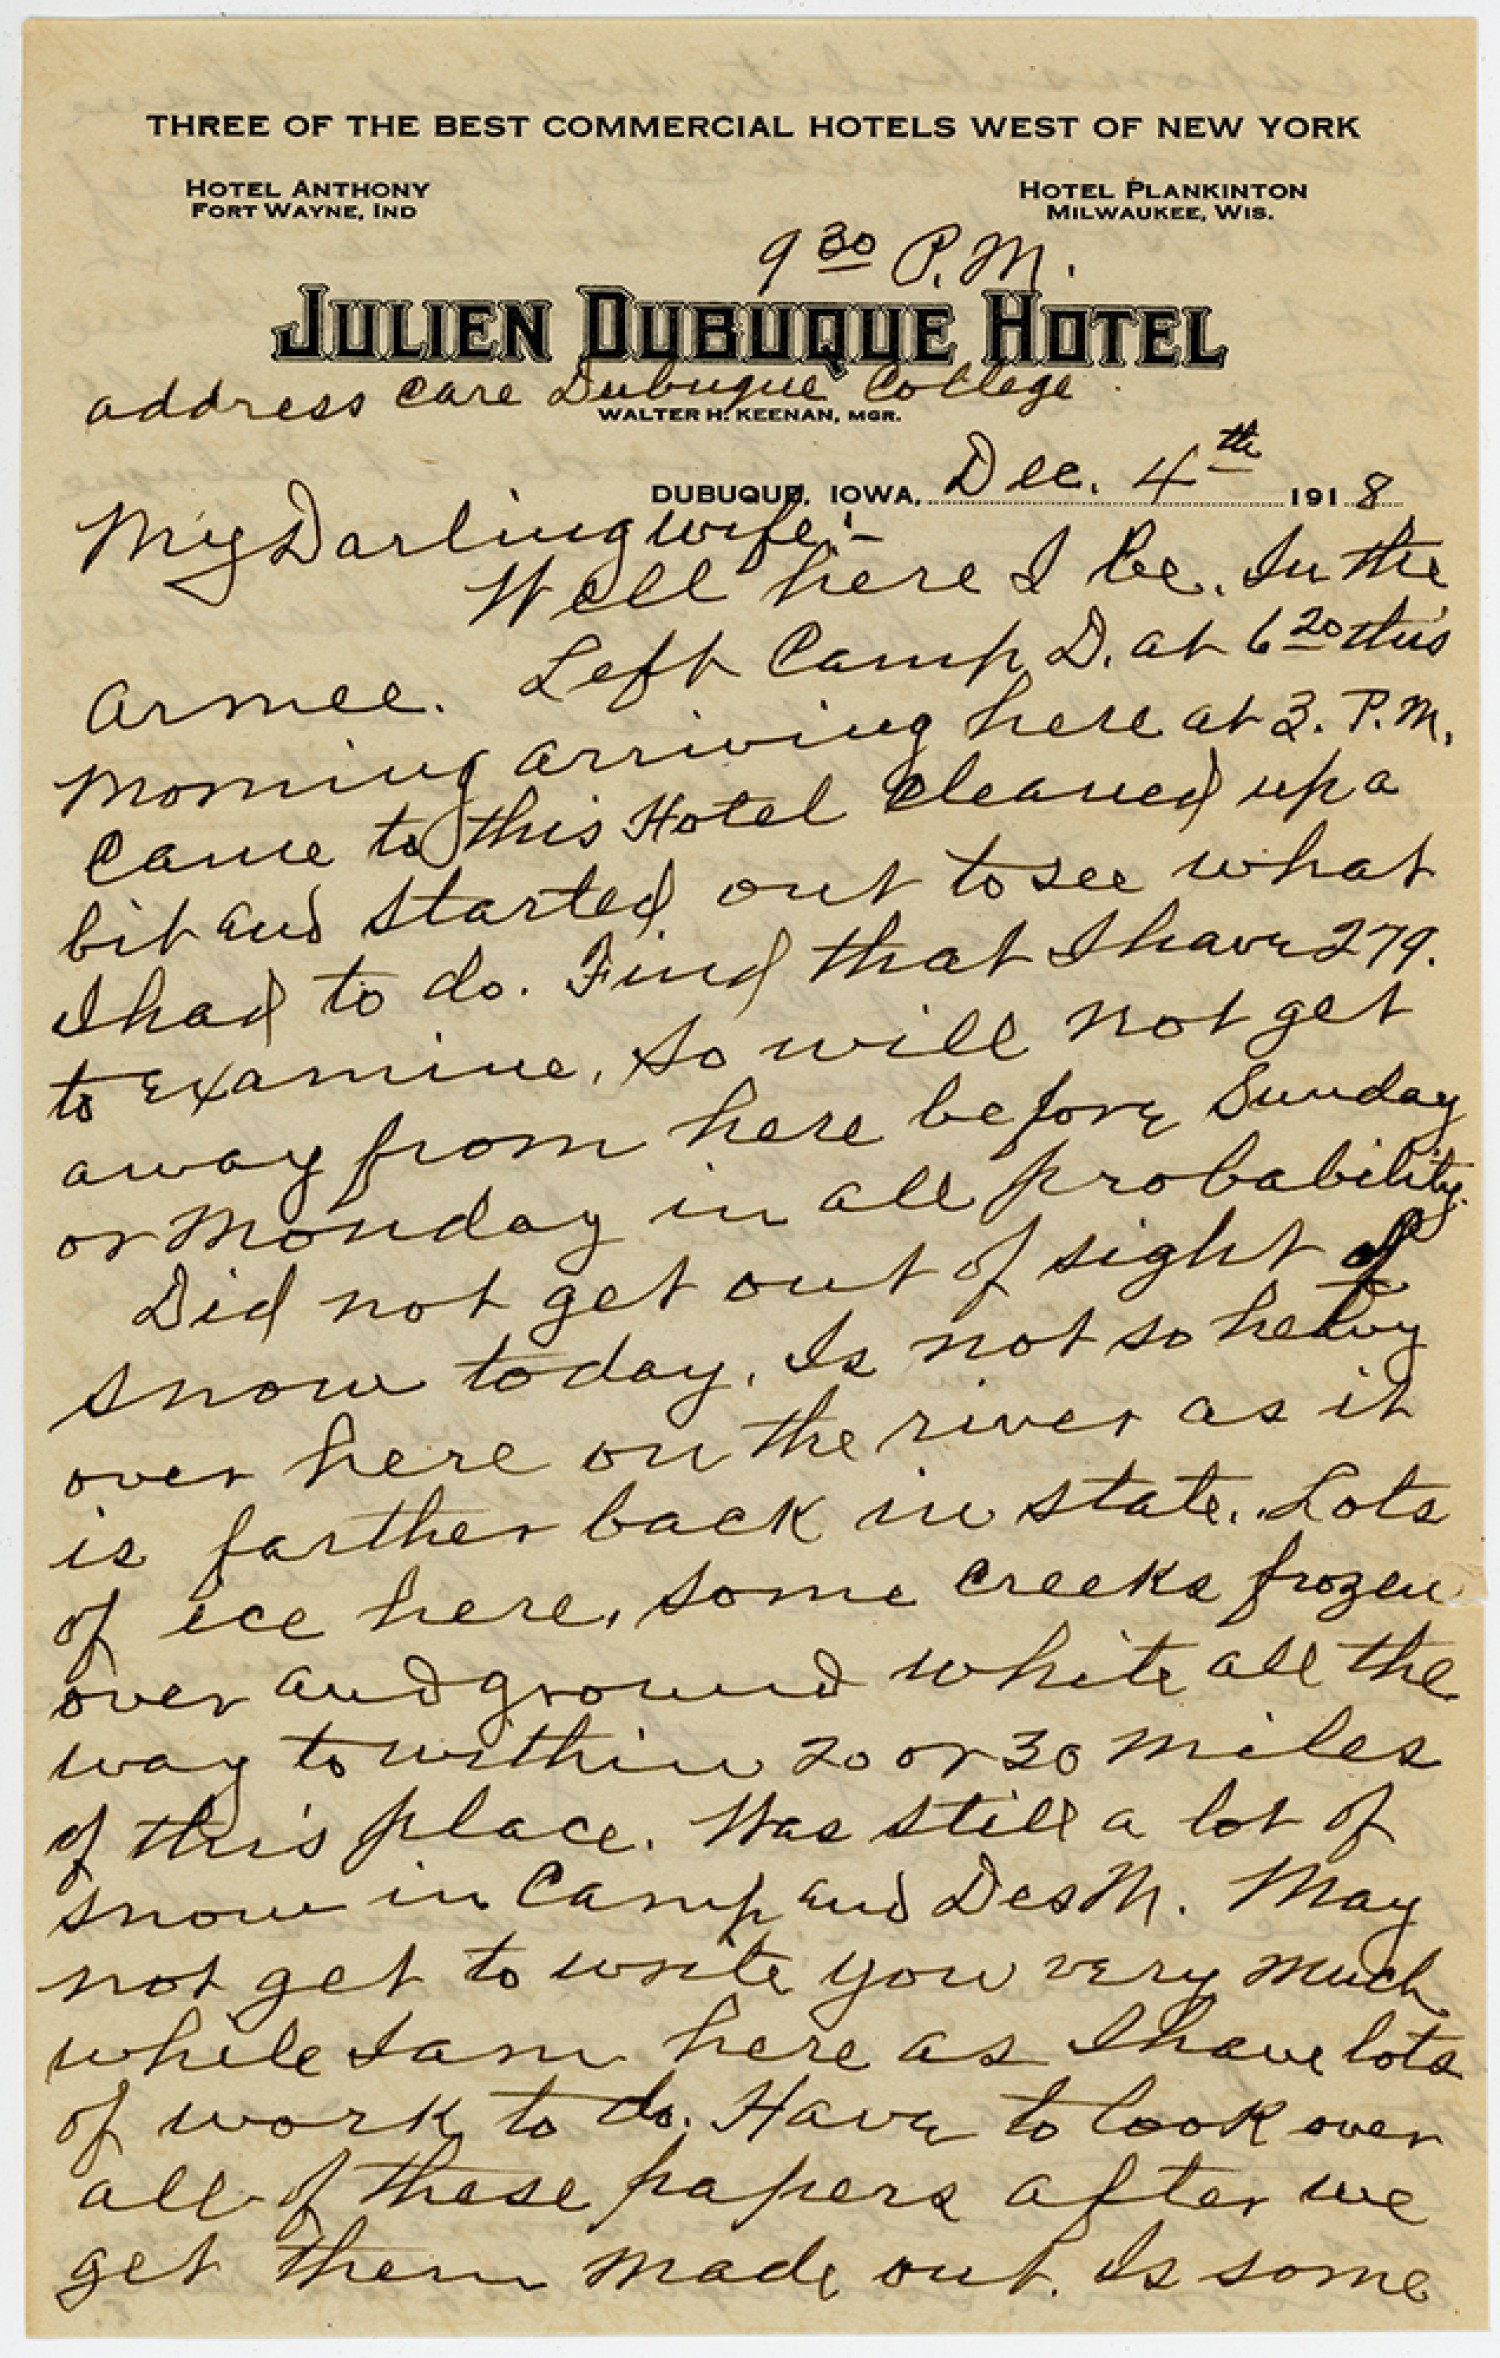 THREE OF THE BEST COMMERCIAL HOTELS WEST OF NEW YORK
HOTEL ANTHONY
FORT WAYNE, IND
HOTEL PLANKINTON
MILWAUKEE, WIS.
9 30 P.M.
JULIEN DUBUQUE HOTEL
address care Dubuque College
WALTER H. KEENAN, MGR.
DUBUQUE, IOWA, Dec. 4th 1918
My Darling wife:-
Well here I be. In the
armee. Left Camp D. at 6 20 this
morning arriving here at 3. P.M.
Came to this Hotel cleaned up a
bit and started out to see what
I had to do. Find that I have 279.
to examine, so will not get
away from here before Sunday
or Monday in all probability.
Did not get out of sight of
snow today. Is not so heavy
over here on the river as it
is farther back in state. Lots
of ice here, some creeks frozen
over and ground white all the
way to within 20 or 30 miles
of this place. Was still a lot of
snow in Camp and Des M. May
not get to write you very much
while I am here as I have lots
of work to do. Have to look over
all of these papers after we
get them made out. Is some